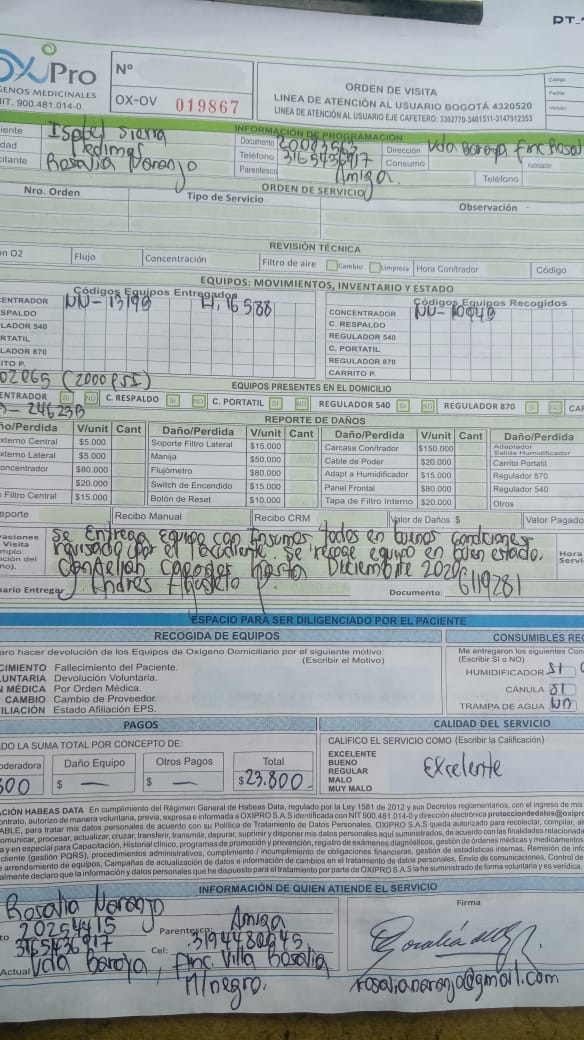 PT-
OXiPro
GENOS MEDICINALES
NIT. 900.481.014-0
Nº
OX-OV 019867
ORDEN DE VISITA
LINEA DE ATENCIÓN AL USUARIO BOGOTÁ 4320520
LINEA DE ATENCIÓN AL USUARIO EJE CAFETERO: 3302770-3401511-3147912353
Código
Fecha
Versión
INFORMACIÓN DE PROGRAMACIÓN
iente Isabel Sierra Documento Dirección Vda Baroya Finc Rosal
dad Medimas Teléfono 3165436917 Consumo
citante Rosalia Naranjo Parentesco Amiga Teléfono
ORDEN DE SERVICIO
Nro. Orden Tipo de Servicio Observación
REVISIÓN TÉCNICA
n O2 Flujo Concentración Filtro de aire Cambio Limpieza Hora Con/trador Código
EQUIPOS: MOVIMIENTOS, INVENTARIO Y ESTADO
Códigos Equipos Entregados Códigos Equipos Recogidos
ENTRADOR NU-13193 H,16588 CONCENTRADOR NU-10949
SPALDO C. RESPALDO
LADOR 540 REGULADOR 540
RTATIL C. PORTATIL
LADOR 870 REGULADOR 870
ITO P. CARRITO P.
02065 (2000 PSI)
EQUIPOS PRESENTES EN EL DOMICILIO
ENTRADOR SI NO C. RESPALDO SI NO C. PORTATIL SI NO REGULADOR 540 SI NO REGULADOR 870 SI NO CAR
24623B
REPORTE DE DAÑOS
ño/Perdida V/unit Cant Daño/Perdida V/unit Cant Daño/Perdida V/unit Cant Daño/Perdida
xterno Central $5.000 Soporte Filtro Lateral $15.000 Carcasa Con/trador $150.000 Adaptador Salida Humidificador
xterno Lateral $5.000 Manija $50.000 Cable de Poder $20.000 Carrito Portatil
oncentrador $80.000 Flujómetro $80.000 Adapt a Humidificador $15.000 Regulador 870
$20.000 Switch de Encendido $15.000 Panel Frontal $80.000 Regulador 540
Filtro Central $15.000 Botón de Reset $10.000 Tapa de Filtro Interno $20.000 Otros
eporte Recibo Manual Recibo CRM Valor de Daños $ Valor Pagado
aciones Se Entrega equipo con Insumos todos en buenas condiciones
Visita revisado por el paciente. Se recoge equipo en buen estado. Hora
Diciembre 2020 Servi
ario Entrega: Andres Agudelo P. Documento: 6119281
ESPACIO PARA SER DILIGENCIADO POR EL PACIENTE
RECOGIDA DE EQUIPOS CONSUMIBLES REC
aro hacer devolución de los Equipos de Oxígeno Domiciliario por el siguiente motivo: Me entregaron los siguientes Con
(Escribir el Motivo) (Escribir SI o NO)
CIMIENTO Fallecimiento del Paciente. HUMIDIFICADOR SI
LUNTARIA Devolución Voluntaria. CÁNULA SI
N MÉDICA Por Orden Médica. TRAMPA DE AGUA NO
CAMBIO Cambio de Proveedor.
ILIACIÓN Estado Afiliación EPS.
PAGOS CALIDAD DEL SERVICIO
DO LA SUMA TOTAL POR CONCEPTO DE: CALIFICO EL SERVICIO COMO (Escribir la Calificación)
oderadora Daño Equipo Otros Pagos Total EXCELENTE
BUENO Excelente
800 $ — $ — $23.800 REGULAR
MALO
MUY MALO
ACIÓN HABEAS DATA En cumplimiento del Régimen General de Habeas Data, regulado por la Ley 1581 de 2012 y sus Decretos reglamentarios, con el ingreso de mis
ontrato, autorizo de manera voluntaria, previa, expresa e informada a OXIPRO S.A.S identificada con NIT 900.481.014-0 y dirección electrónica protecciondedatos@oxipro
ABLE, para tratar mis datos personales de acuerdo con su Política de Tratamiento de Datos Personales. OXIPRO S.A.S queda autorizada para recolectar, compilar, al
comunicar, procesar, actualizar, cruzar, transferir, transmitir, depurar, suprimir y disponer mis datos personales aquí suministrados, de acuerdo con las finalidades relacionada
y en especial para Capacitación, Historial clínico, programas de promoción y prevención, registro de exámenes diagnósticos, gestión de órdenes médicas y medicamentos
cliente (gestión PQRS), procedimientos administrativos, cumplimiento / incumplimiento de obligaciones financieras, gestión de estadísticas internas, Remisión de info
e arrendamiento de equipos, Campañas de actualización de datos e información de cambios en el tratamiento de datos personales, Envío de comunicaciones, Control de
almente declaro que la información y datos personales que he dispuesto para el tratamiento por parte de OXIPRO S.A.S la he suministrado de forma voluntaria y es verídica.
INFORMACIÓN DE QUIEN ATIENDE EL SERVICIO
Rosalia Naranjo Firma
to 20254415 Parentesco: Amiga
3165436917 Cel: 3194480645
Actual Vda Baroya, Finc. Villa Rosalia
R/negro. rosalianaranjo@gmail.com